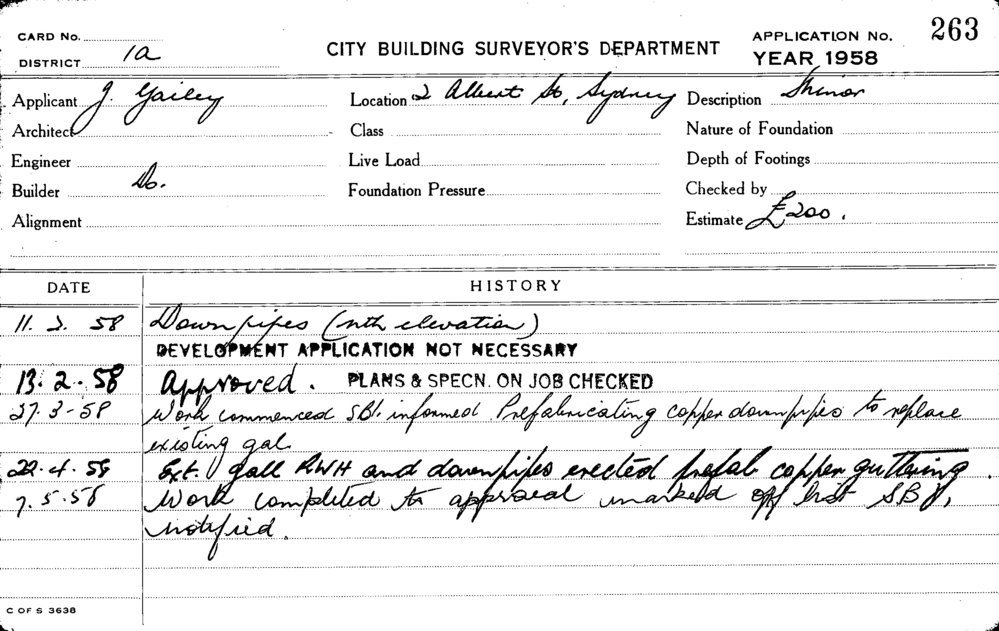 CARD No.
DISTRICT 1a
CITY BUILDING SURVEYOR'S DEPARTMENT
APPLICATION No. 263
YEAR 1958
Applicant J. Gailey
Location 2 Albert St, Sydney
Description Minor
Architect
Class
Nature of Foundation
Engineer
Live Load
Depth of Footings
Builder Do.
Foundation Pressure
Checked by
Alignment
Estimate £200.
DATE HISTORY
11. 2. 58 Downpipes (nth elevation)
DEVELOPMENT APPLICATION NOT NECESSARY
13. 2. 58 Approved. PLANS & SPECN. ON JOB CHECKED
27. 3 - 58 Work commenced SBI. informed Prefabricating copper downpipes to replace
existing gal.
22. 4. 58 Ext. gall RWH and downpipes erected prefab copper guttering.
7. 5. 58 Work completed to approval marked off list SBI,
notified.
C OF S 3638